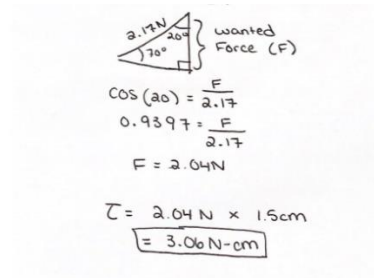 2.17N 20° wanted
70° Force (F)
cos(20) = F/2.17
0.9397 = F/2.17
F = 2.04N
τ = 2.04 N × 1.5cm
= 3.06 N-cm